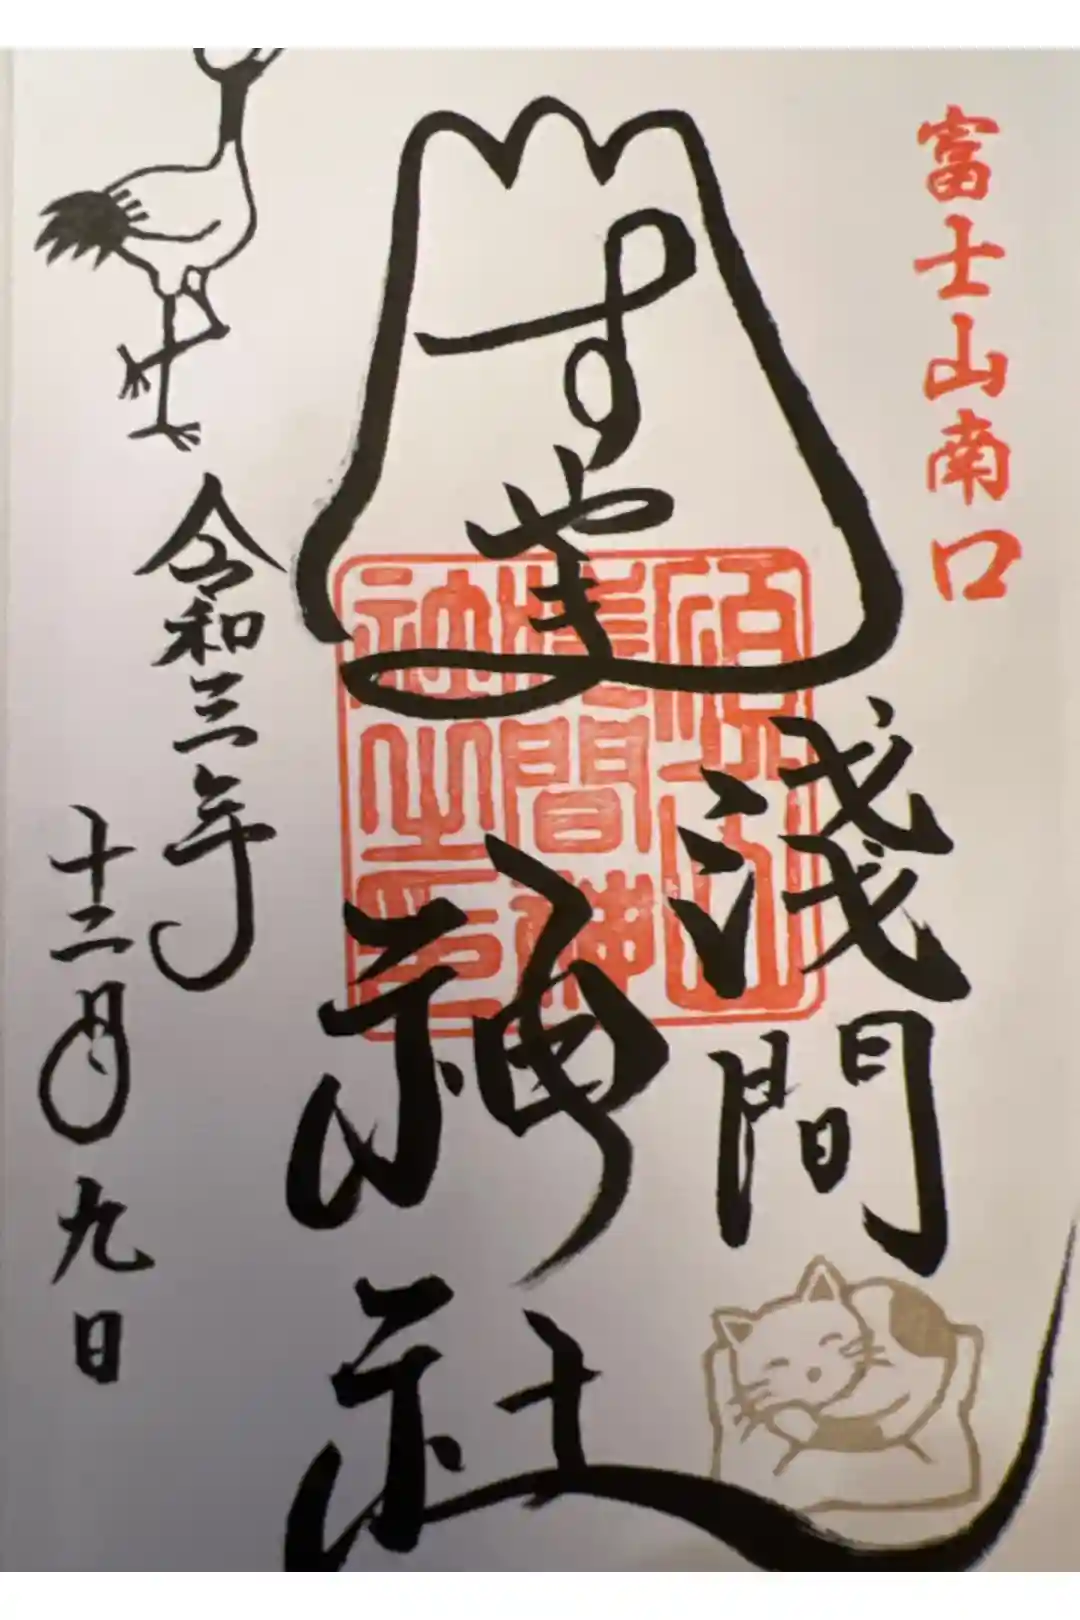 富士山南口
すやま
浅間
神社
須山
浅間神
社之印
令和三年
十二月九日